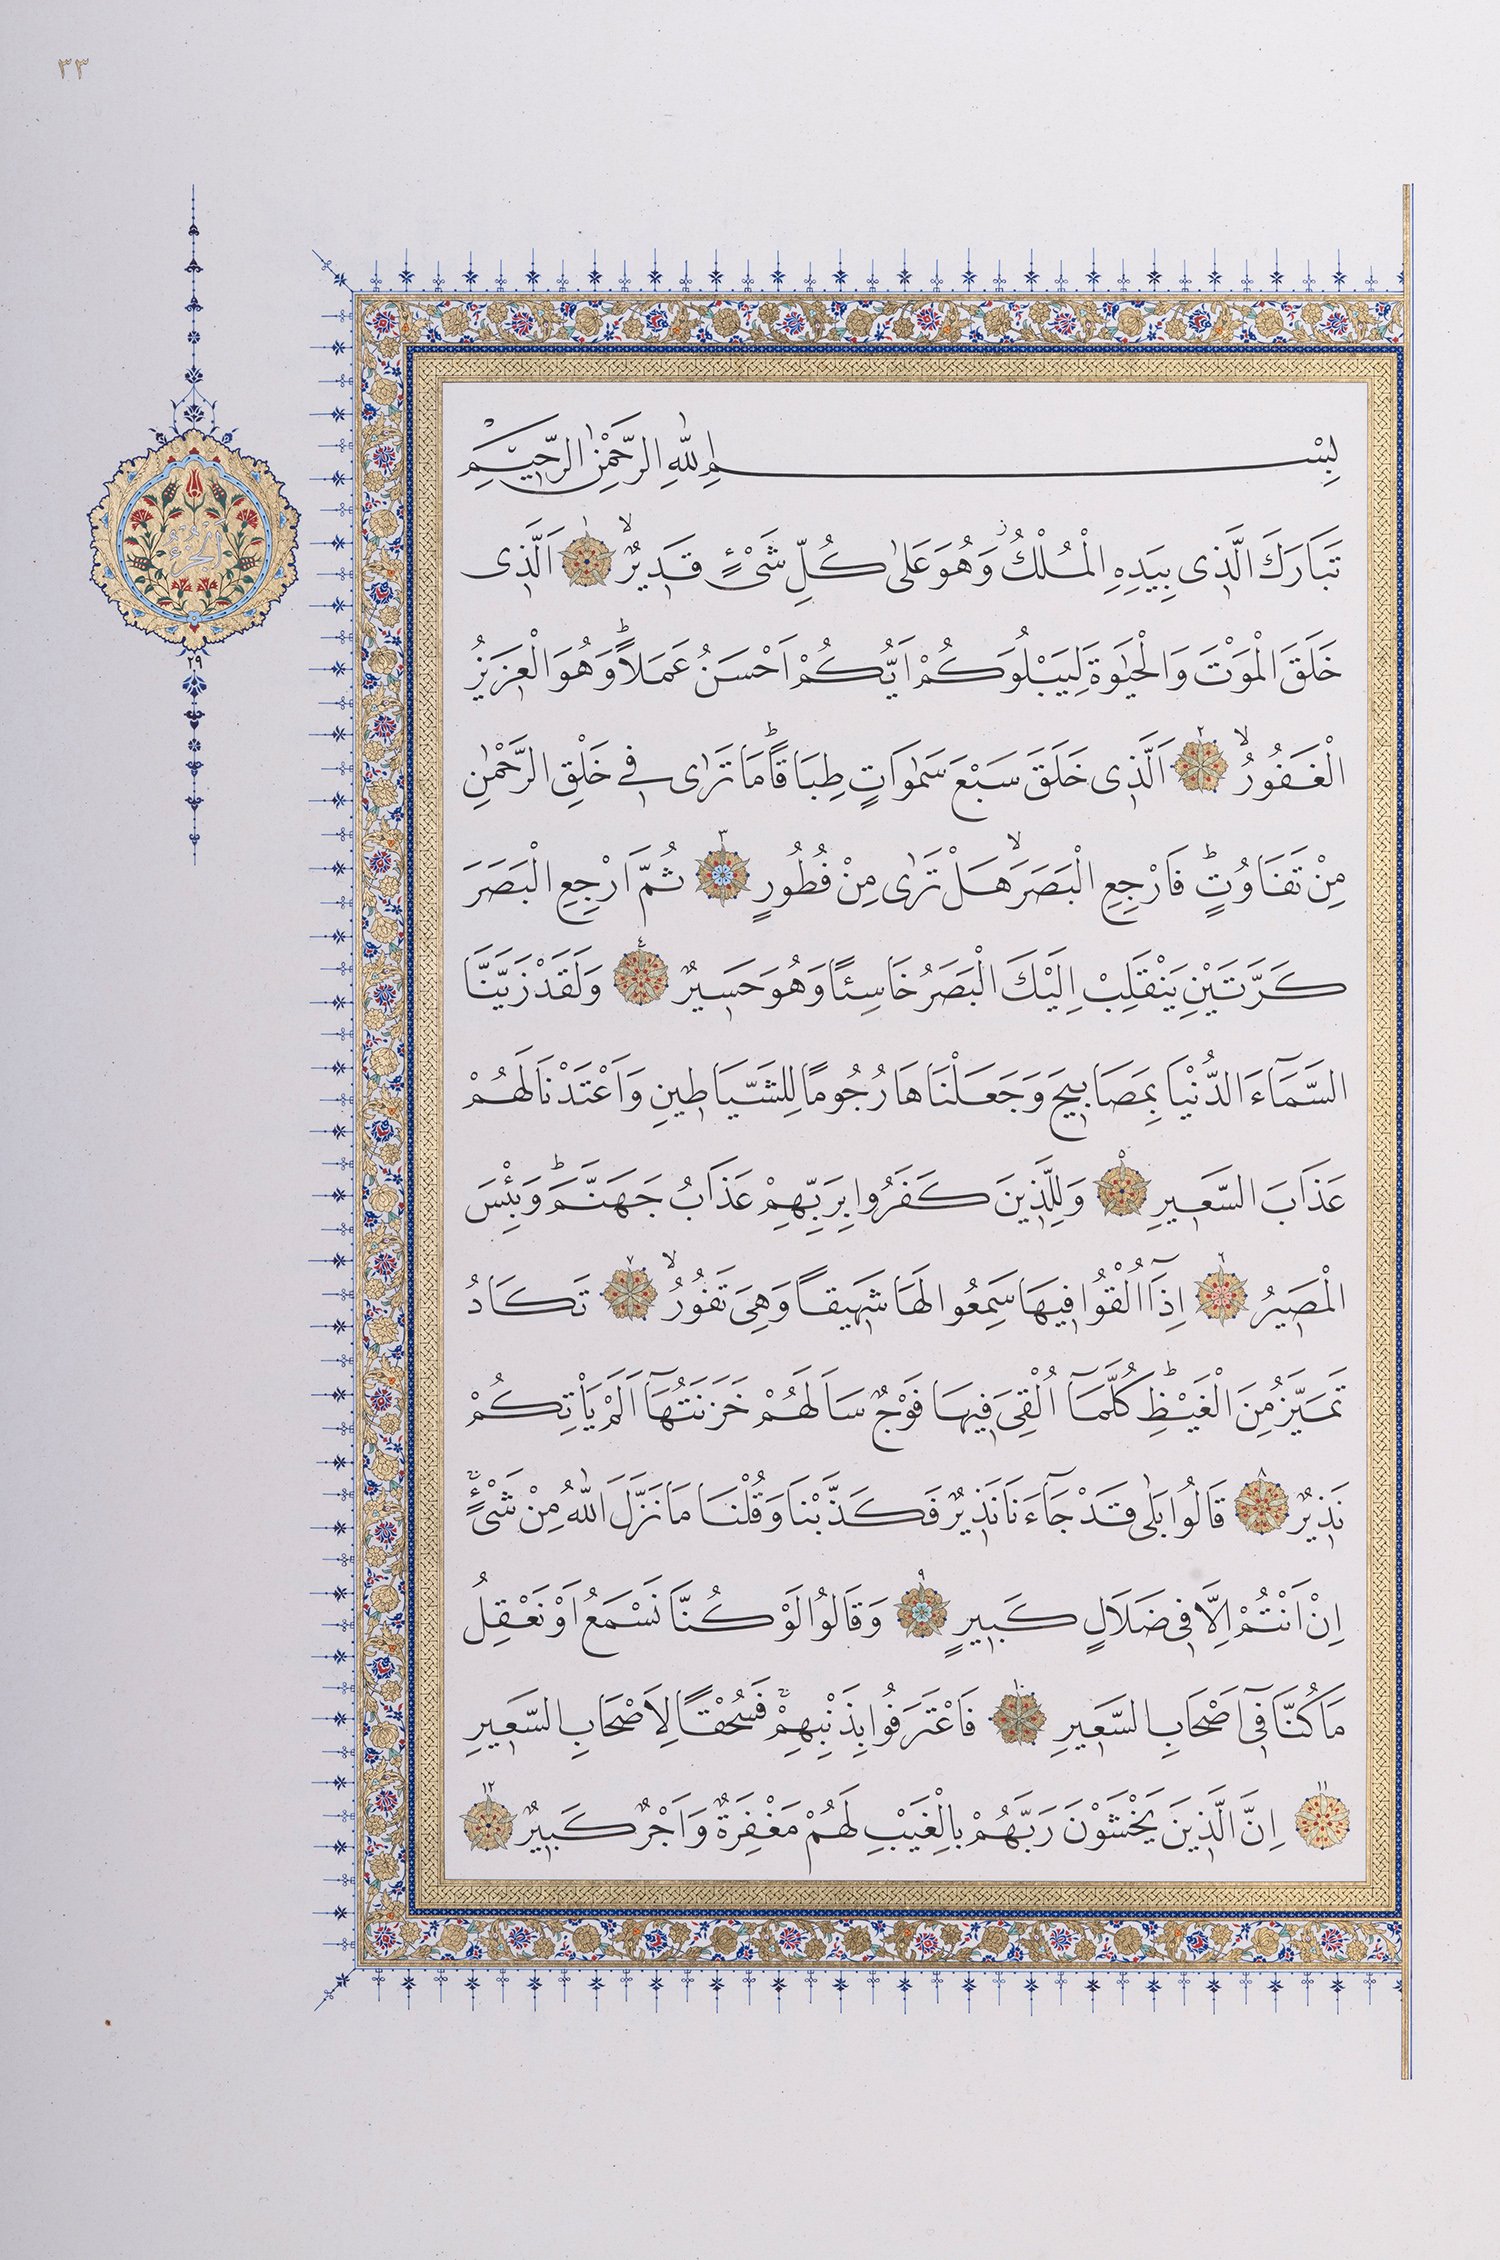 ٣٣
بِسْمِ اللّٰهِ الرَّحْمٰنِ الرَّحِيمِ
تَبَارَكَ الَّذِى بِيَدِهِ الْمُلْكُ وَهُوَ عَلٰى كُلِّ شَىْءٍ قَدِيرٌ ۙ ١ اَلَّذِى
خَلَقَ الْمَوْتَ وَالْحَيٰوةَ لِيَبْلُوَكُمْ اَيُّكُمْ اَحْسَنُ عَمَلًا ؕ وَهُوَ الْعَزِيزُ
الْغَفُورُ ۙ ٢ اَلَّذِى خَلَقَ سَبْعَ سَمٰوَاتٍ طِبَاقًا ؕ مَا تَرٰى فِى خَلْقِ الرَّحْمٰنِ
مِنْ تَفَاوُتٍ ؕ فَارْجِعِ الْبَصَرَ ۙ هَلْ تَرٰى مِنْ فُطُورٍ ٣ ثُمَّ ارْجِعِ الْبَصَرَ
كَرَّتَيْنِ يَنْقَلِبْ اِلَيْكَ الْبَصَرُ خَاسِئًا وَهُوَ حَسِيرٌ ٤ وَلَقَدْ زَيَّنَّا
السَّمَآءَ الدُّنْيَا بِمَصَابِيحَ وَجَعَلْنَاهَا رُجُومًا لِلشَّيَاطِينِ وَاَعْتَدْنَا لَهُمْ
عَذَابَ السَّعِيرِ ٥ وَلِلَّذِينَ كَفَرُوا بِرَبِّهِمْ عَذَابُ جَهَنَّمَ ؕ وَبِئْسَ
الْمَصِيرُ ٦ اِذَآ اُلْقُوا فِيهَا سَمِعُوا لَهَا شَهِيقًا وَهِىَ تَفُورُ ۙ ٧ تَكَادُ
تَمَيَّزُ مِنَ الْغَيْظِ ؕ كُلَّمَآ اُلْقِىَ فِيهَا فَوْجٌ سَاَلَهُمْ خَزَنَتُهَآ اَلَمْ يَاْتِكُمْ
نَذِيرٌ ٨ قَالُوا بَلٰى قَدْ جَآءَنَا نَذِيرٌ فَكَذَّبْنَا وَقُلْنَا مَا نَزَّلَ اللّٰهُ مِنْ شَىْءٍ ۚ
اِنْ اَنْتُمْ اِلَّا فِى ضَلَالٍ كَبِيرٍ ٩ وَقَالُوا لَوْ كُنَّا نَسْمَعُ اَوْ نَعْقِلُ
مَا كُنَّا فِىٓ اَصْحَابِ السَّعِيرِ ١٠ فَاعْتَرَفُوا بِذَنْبِهِمْ ۚ فَسُحْقًا لِاَصْحَابِ السَّعِيرِ
١١ اِنَّ الَّذِينَ يَخْشَوْنَ رَبَّهُمْ بِالْغَيْبِ لَهُمْ مَغْفِرَةٌ وَاَجْرٌ كَبِيرٌ ١٢
اَلْجُزْءُ
٢٩